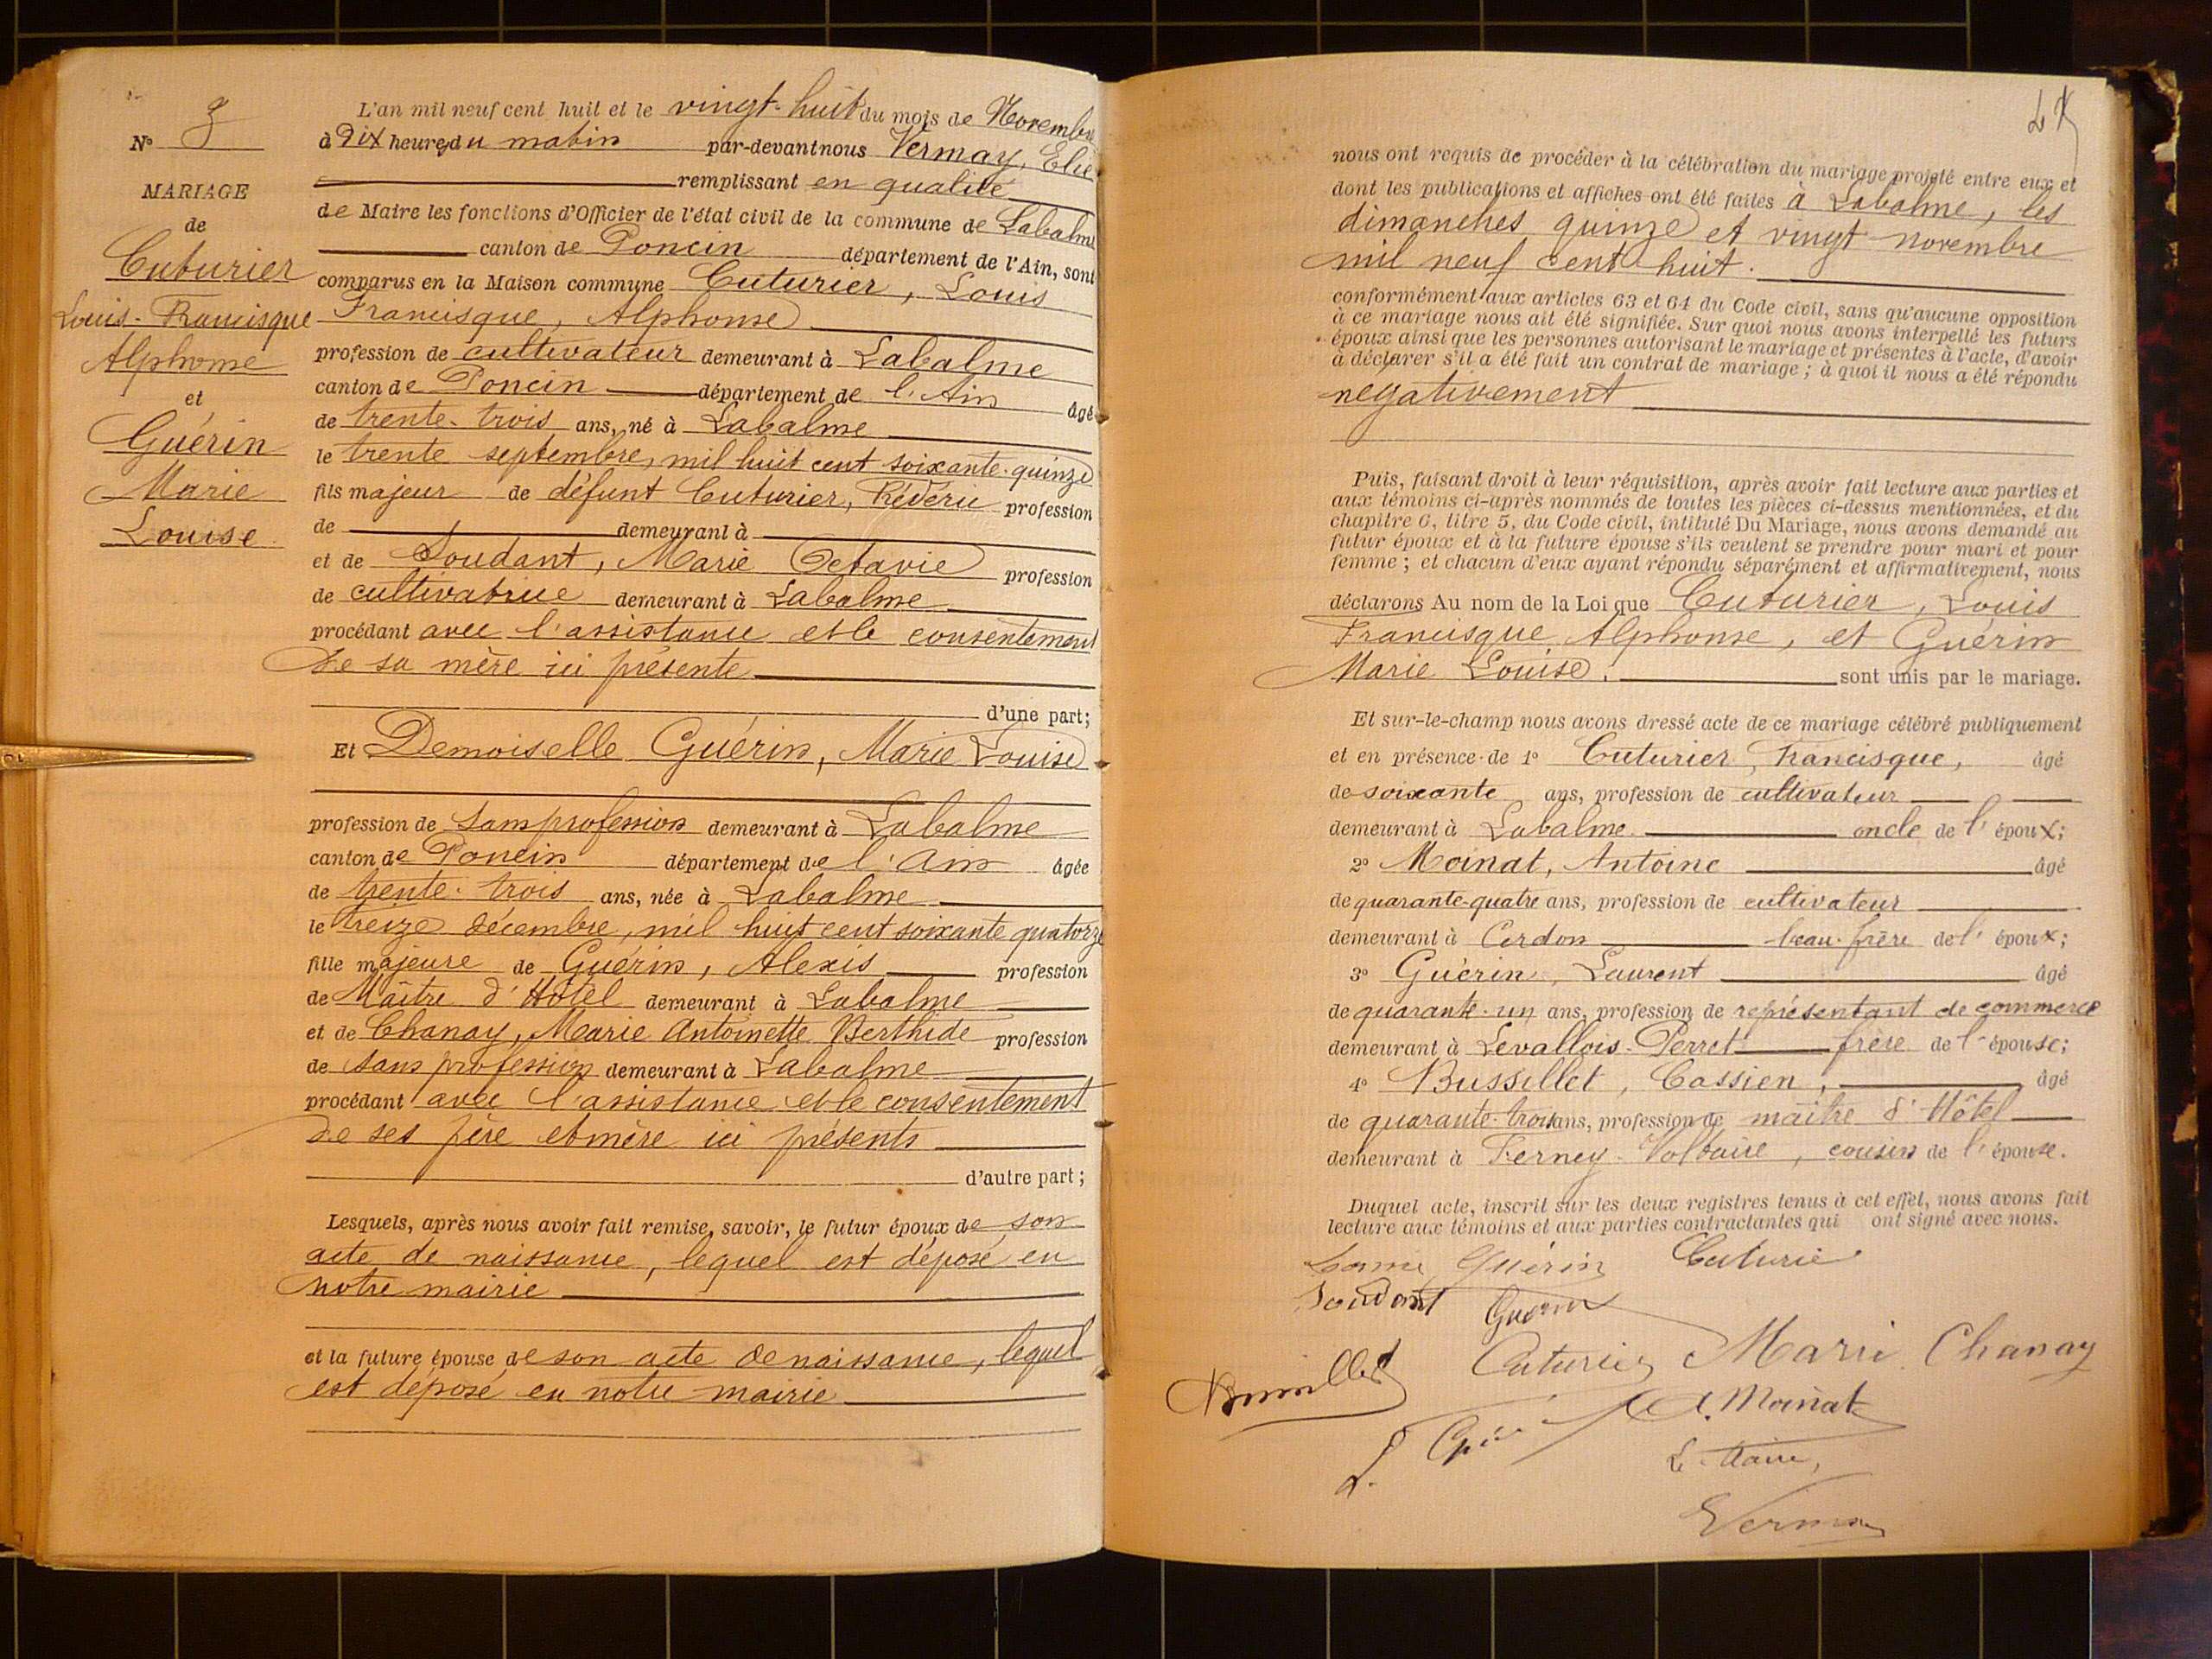 N° 3
MARIAGE
de
Cuturier
Louis-Francisque
Alphonse
et
Guérin
Marie
Louise
L'an mil neuf cent huit et le vingt-huit du mois de Novembre
à Dix heures du matin par-devant nous Vermay, Elie
remplissant en qualité
de Maire les fonctions d'Officier de l'état civil de la commune de Labalme
canton de Poncin département de l'Ain, sont
comparus en la Maison commune Cuturier, Louis
Francisque, Alphonse
profession de cultivateur demeurant à Labalme
canton de Poncin département de l'Ain âgé
de trente-trois ans, né à Labalme
le trente septembre, mil huit cent soixante-quinze
fils majeur de défunt Cuturier, Fréderic profession
de demeurant à
et de Soudant, Marie Octavie profession
de cultivatrice demeurant à Labalme
procédant avec l'assistance et le consentement
de sa mère ici présente
d'une part;
Et Demoiselle Guérin, Marie Louise
profession de Sans profession demeurant à Labalme
canton de Poncin département de l'Ain âgée
de trente-trois ans, née à Labalme
le treize décembre, mil huit cent soixante quatorze
fille majeure de Guérin, Alexis profession
de Maître d'Hôtel demeurant à Labalme
et de Chanay, Marie Antoinette Berthide profession
de sans profession demeurant à Labalme
procédant avec l'assistance et le consentement
de ses père et mère ici présents
d'autre part;
Lesquels, après nous avoir fait remise, savoir, le futur époux de son
acte de naissance, lequel est déposé en
notre mairie
et la future épouse de son acte de naissance, lequel
est déposé en notre mairie
nous ont requis de procéder à la célébration du mariage projeté entre eux et
dont les publications et affiches ont été faites à Labalme, les
dimanches quinze et vingt novembre
mil neuf cent huit.
conformément aux articles 63 et 64 du Code civil, sans qu'aucune opposition
à ce mariage nous ait été signifiée. Sur quoi nous avons interpellé les futurs
époux ainsi que les personnes autorisant le mariage et présentes à l'acte, d'avoir
à déclarer s'il a été fait un contrat de mariage; à quoi il nous a été répondu
négativement
Puis, faisant droit à leur réquisition, après avoir fait lecture aux parties et
aux témoins ci-après nommés de toutes les pièces ci-dessus mentionnées, et du
chapitre 6, titre 5, du Code civil, intitulé Du Mariage, nous avons demandé au
futur époux et à la future épouse s'ils veulent se prendre pour mari et pour
femme; et chacun d'eux ayant répondu séparément et affirmativement, nous
déclarons Au nom de la Loi que Cuturier, Louis
Francisque Alphonse, et Guérin
Marie Louise, sont unis par le mariage.
Et sur-le-champ nous avons dressé acte de ce mariage célébré publiquement
et en présence de 1° Cuturier, Francisque, âgé
de soixante ans, profession de cultivateur
demeurant à Labalme oncle de l'époux;
2° Moinat, Antoine âgé
de quarante-quatre ans, profession de cultivateur
demeurant à Cerdon beau-frère de l'époux;
3° Guérin, Laurent âgé
de quarante-un ans, profession de représentant de commerce
demeurant à Levallois-Perret frère de l'épouse;
4° Bussillet, Cassien, âgé
de quarante-trois ans, profession de maître d'Hôtel
demeurant à Ferney-Voltaire, cousin de l'épouse.
Duquel acte, inscrit sur les deux registres tenus à cet effet, nous avons fait
lecture aux témoins et aux parties contractantes qui ont signé avec nous.
Guérin Cuturier
Soudant Guérin
Cuturier Marie Chanay
Bussillet A. Moinat
Le Maire,
Vermay